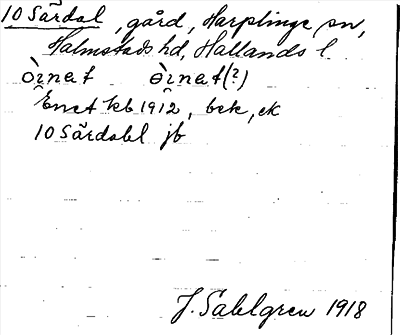 10 Särdal, gård, Harplinge sn,
Halmstads hd, Hallands l.
òrnat òrnat(?)
Enet kb 1912, bek, ek
10 Särdal jb
J. Sahlgren 1918